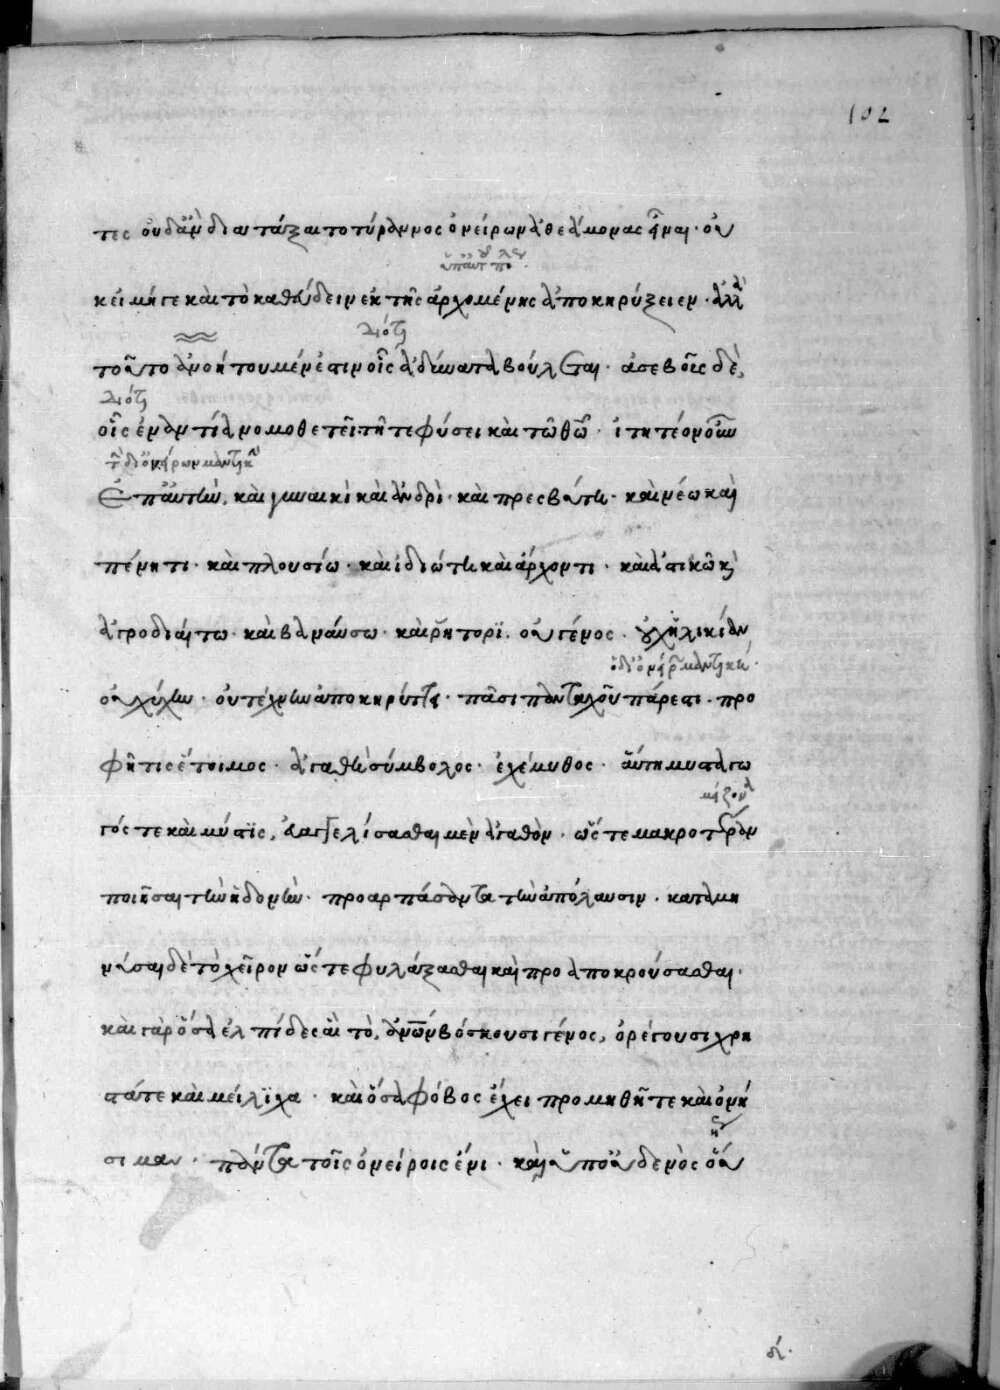 102
τες οὐδ' ἂν διατάξαιτο τύραννος ὀνείρων ἀθεάμονας εἶναι· οὐ
κεῖ μή γε καὶ τὸ καθεύδειν ἐκ τῆς ἀρχομένης ἀποκηρύξειεν· ἀλλὰ
διότι
τοῦτο ἀνοήτου μέν ἐστιν οἷς ἀδύνατα βούλεται· ἀσεβοῦς δὲ,
διότι
οἷς ἐναντία νομοθετεῖ τῇ τε φύσει καὶ τῷ θεῷ· ἰτητέον οὖν
τὴν δι ὀνείρων μαντικὴν
ἐπ' αὐτὴν, καὶ γυναικὶ καὶ ἀνδρὶ· καὶ πρεσβύτῃ· καὶ νέῳ καὶ
πένητι· καὶ πλουσίῳ· καὶ ἰδιώτῃ καὶ ἄρχοντι· καὶ ἀστικῷ καὶ
ἀγροδιαίτῳ· καὶ βαναύσῳ· καὶ ῥήτορϊ. οὐ γένος· οὐχ ἡλικίαν
ἡ δι ὀνείρων μαντική·
οὐ τύχην· οὐ τέχνην ἀποκηρύττει· πᾶσι πανταχοῦ πάρεστι· προ
φῆτις ἕτοιμος· ἀγαθὴ σύμβολος· ἐχέμυθος· αὕτη μυσταγω
μείζονα
γός τε καὶ μύστϊς, εὐαγγελίσασθαι μὲν ἀγαθὸν· ὥς τε μακροτέραν
ποιῆσαι τὴν ἡδονὴν· προαρπάσαντα τὴν ἀπόλαυσιν· καταμη
νῦσαι δὲ τὸ χεῖρον ὥς τε φυλάξασθαι καὶ προαποκρούσασθαι·
καὶ γὰρ ὅσα ἐλπίδες αἳ τὸ, ἀνθρώπων βόσκουσι γένος, ὀρέγουσι χρη
στά τε καὶ μείλϊχα· καὶ ὅσα φόβος ἔχει προμηθῆ τε καὶ ὀνή
σιμα· πάντα τοῖς ὀνείροις ἔνι· καὶ ὑπ' οὐδενὸς οὕ